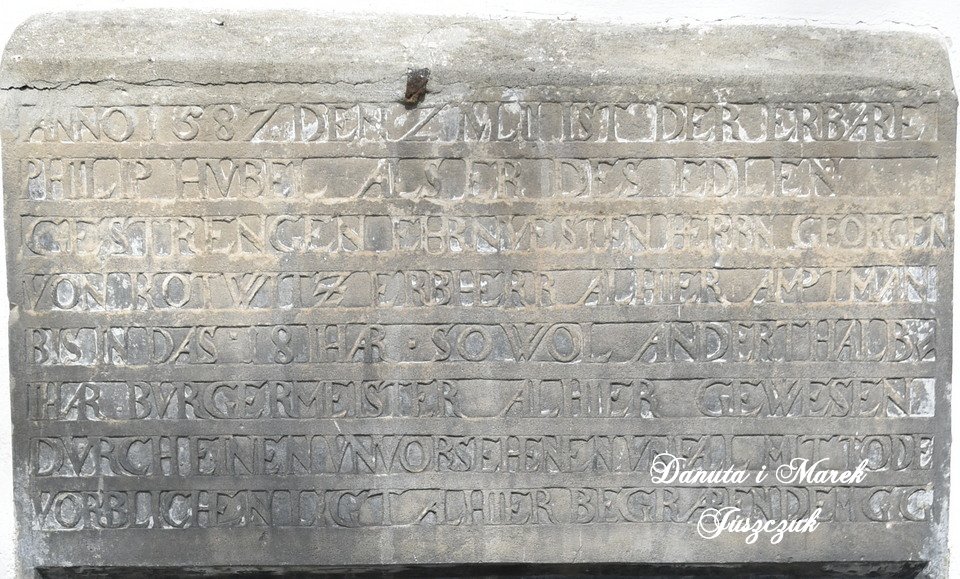 ANNO 1587 DEN 2 MLI IST DER ERBARE
PHILIP HVBEL ALS ER DES EDLEN
GESTRENGEN EHRNVESTEN HERRN GEORGEN
VON ROTWITZ ERBHERR ALHIER AMPTMAN
BIS IN DAS 18 IHAR · SOWOL ANDERTHALBE
IHAR BVRGERMEISTER ALHIER GEWESEN
DVRCH EINEN VNVORSEHENEN MIT TODE
VORBLICHEN LIGT ALHIER BEGRABEN DEM G G
Danuta i Marek
Juszczuk